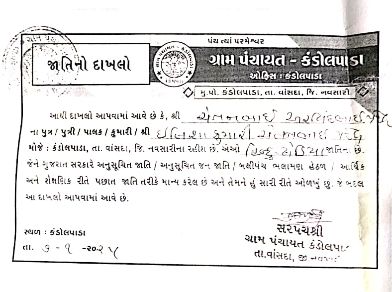 પંચ ત્યાં પરમેશ્વર
જાતિનો દાખલો
ગ્રામ પંચાયત - કંડોલપાડા
ઓફિસ : કંડોલપાડા
મુ.પો. કંડોલપાડા, તા. વાંસદા, જિ. નવસારી
આથી દાખલો આપવામાં આવે છે કે, શ્રી
ના પુત્ર / પુત્રી / પાલક / કુમારી / શ્રી
મોજે : કંડોલપાડા, તા. વાંસદા, જિ. નવસારીના રહીશ છે. એઓ હિન્દુ-ધોડિયા જાતિના છે.
જેને ગુજરાત સરકારે અનુસૂચિત જાતિ / અનુસૂચિત જન જાતિ / બક્ષીપંચ ભલામણ હેઠળ / આર્થિક
અને શૈક્ષણિક રીતે પછાત જાતિ તરીકે માન્ય કરેલ છે અને તેમને હું સારી રીતે ઓળખું છું. જે બદલ
આ દાખલો આપવામાં આવે છે.
સ્થળ : કંડોલપાડા
તા. ૭-૧-૨૦૨૫
સરપંચશ્રી
ગ્રામ પંચાયત કંડોલપાડા
તા.વાંસદા, જી.નવસારી